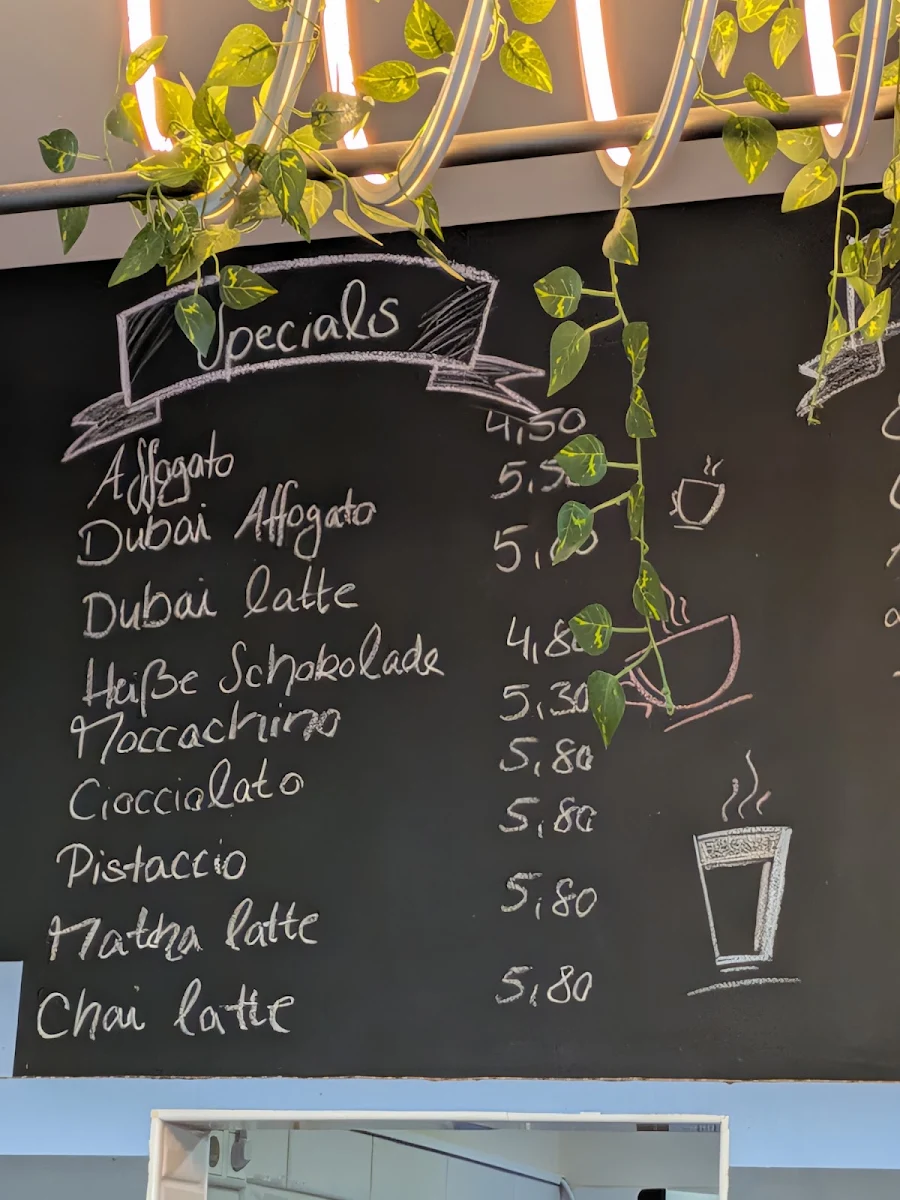 Specials
Affogato 4,50
Dubai Affogato 5,5
Dubai latte 5,
Heiße Schokolade 4,80
Moccachino 5,30
Ciocciolato 5,80
Pistaccio 5,80
Matcha latte 5,80
Chai latte 5,80